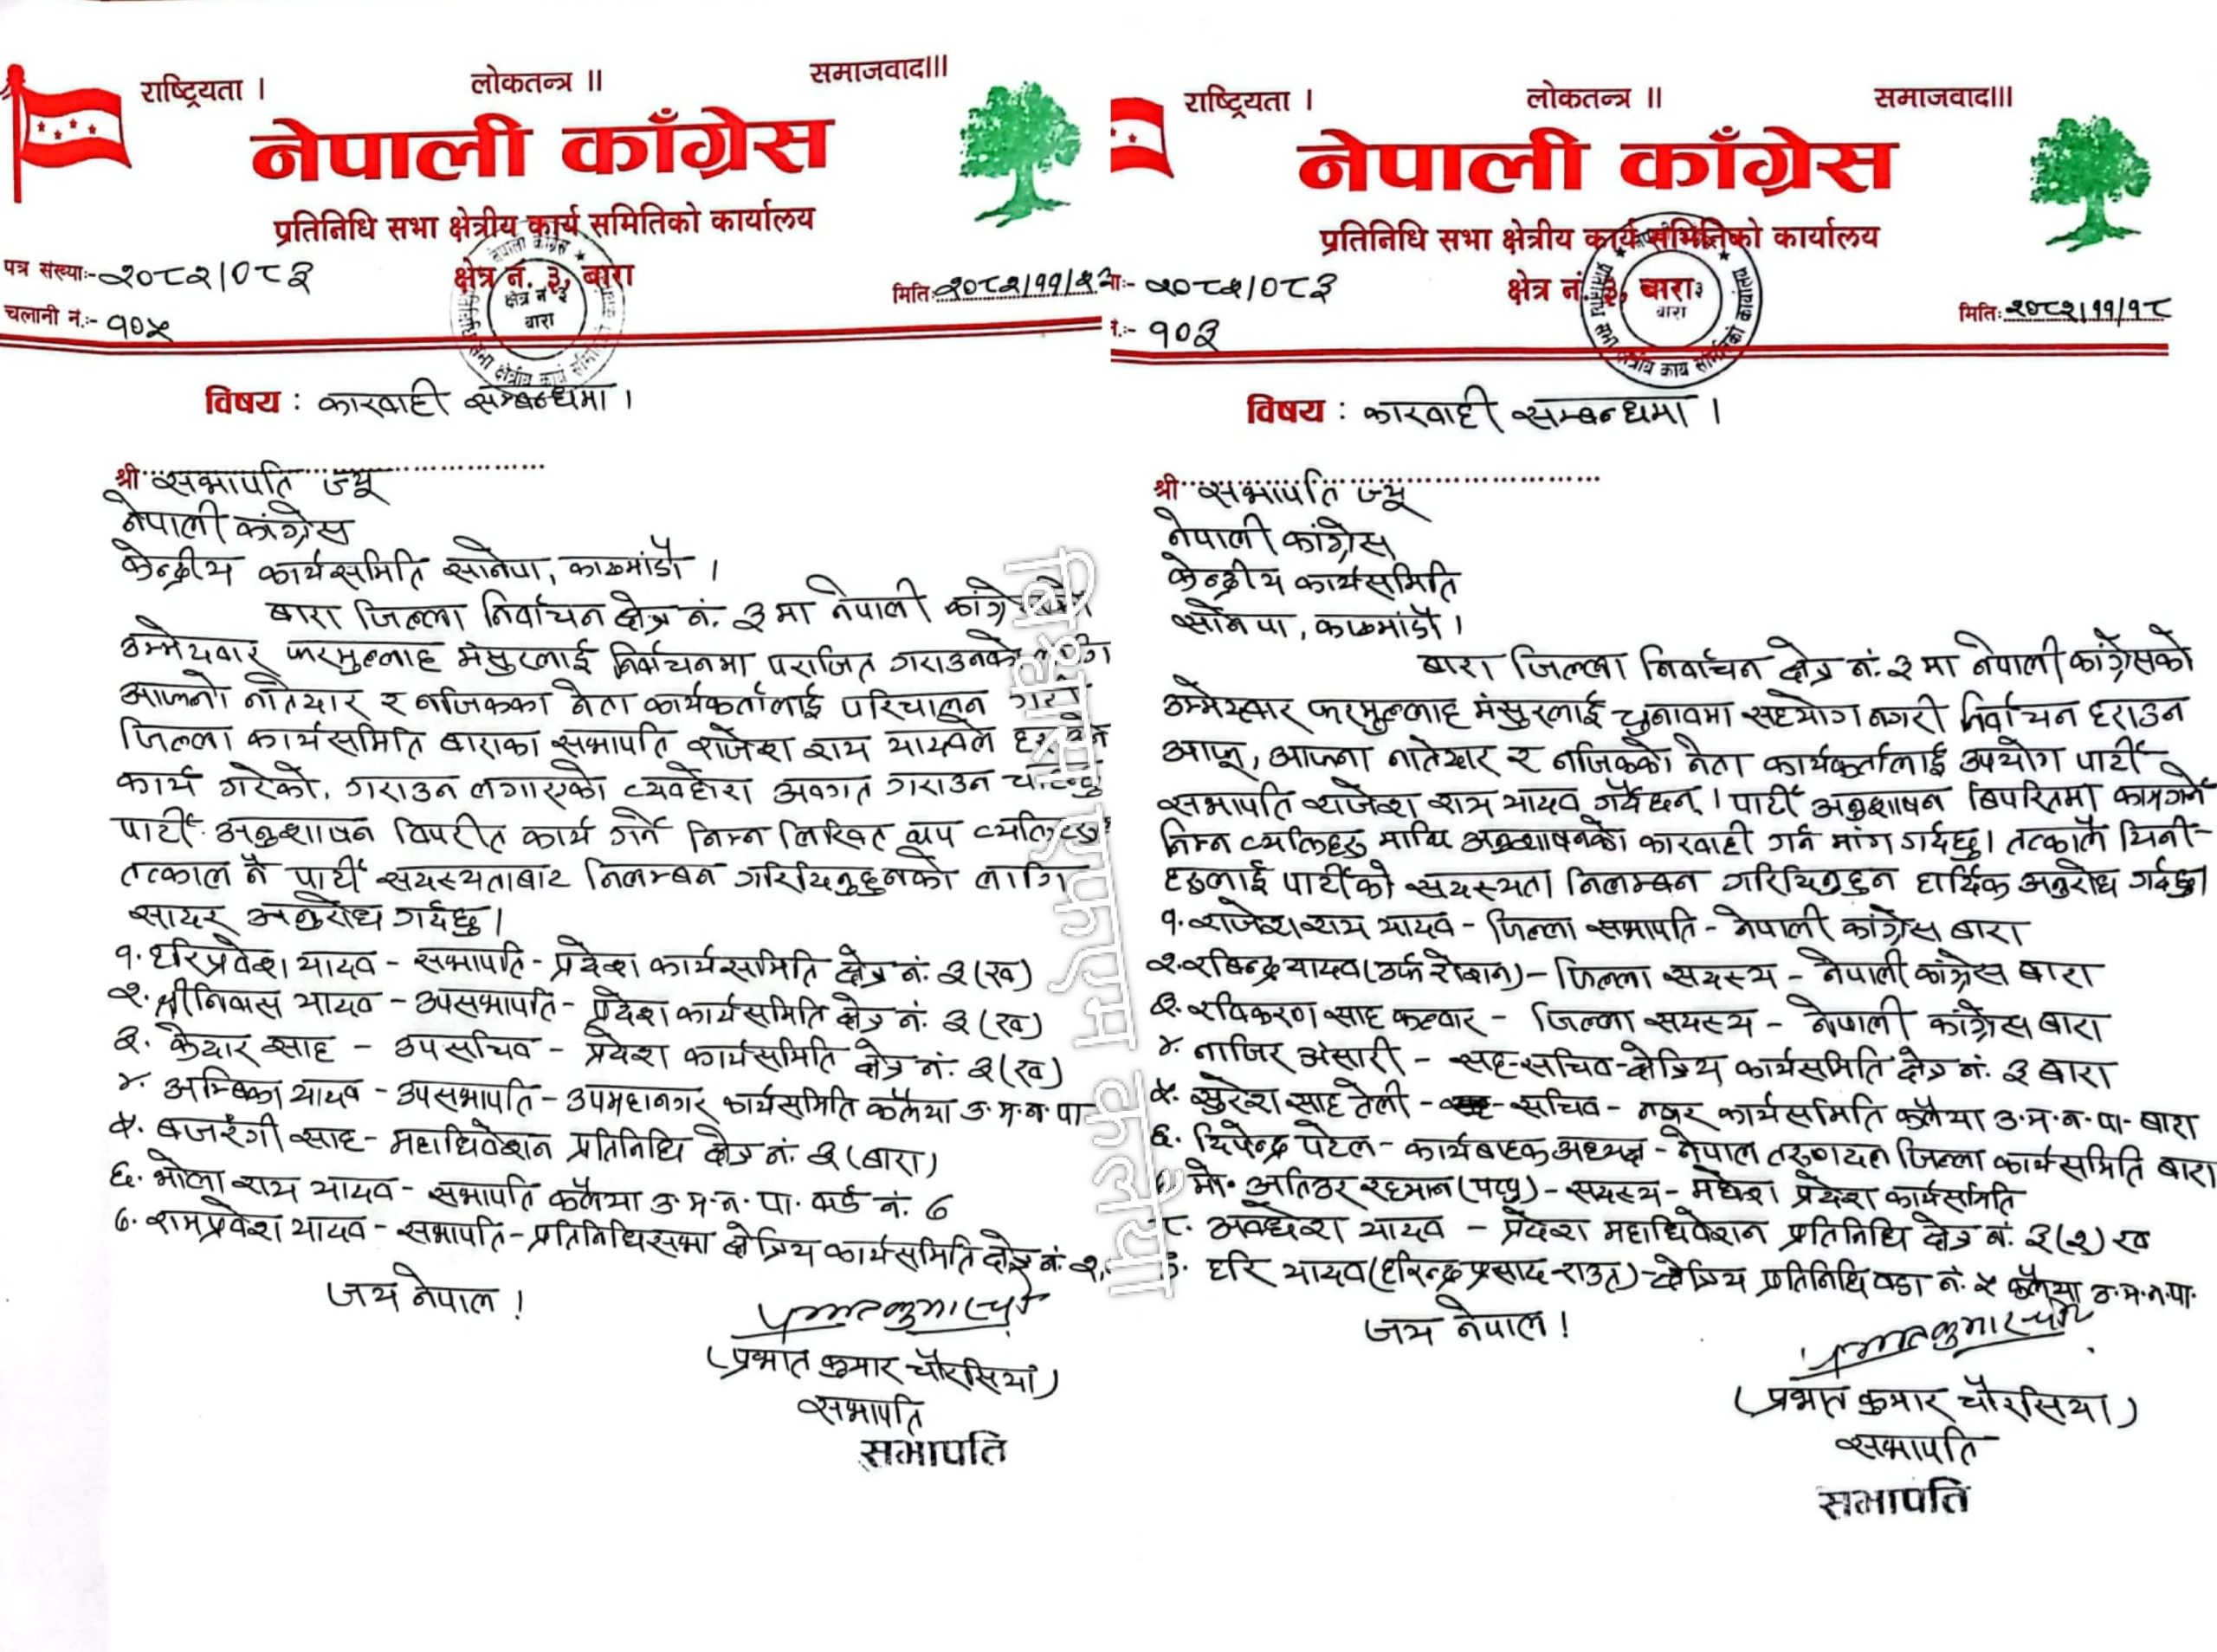 राष्ट्रियता ।
लोकतन्त्र ॥
समाजवाद।।।
नेपाली काँग्रेस
प्रतिनिधि सभा क्षेत्रीय कार्य समितिको कार्यालय
क्षेत्र नं. ३, बारा
पत्र संख्याः- २०८२/०८३
मितिः २०८२/११/२३
चलानी नं.:- १०५
विषय : कारवाही सम्बन्धमा ।
श्री सभापति ज्यू
नेपाली कांग्रेस
केन्द्रीय कार्यसमिति सानेपा, काठमांडौ ।
बारा जिल्ला निर्वाचन क्षेत्र नं. ३ मा नेपाली
उम्मेदवार फरमुल्लाह मंसुरलाई निर्वाचनमा पराजित गराउनको
आफ्नो नातेदार र नजिकका नेता कार्यकर्तालाई परिचालन
जिल्ला कार्यसमिति बाराका सभापति राजेश राय यादवले
कार्य गरेको, गराउन लगाएको व्यवहोरा अवगत गराउन
पार्टी अनुशाषन विपरीत कार्य गर्ने निम्न लिखित थप
तत्काल नै पार्टी सदस्यताबाट निलम्बन गरिदिनुहुनको लागि
सादर अनुरोध गर्दछु।
१. हरिप्रवेश यादव - सभापति - प्रदेश कार्यसमिति क्षेत्र नं. ३ (ख)
२. श्रीनिवास यादव - उपसभापति - प्रदेश कार्यसमिति क्षेत्र नं. ३ (ख)
३. केदार साह - उपसचिव - प्रदेश कार्यसमिति क्षेत्र नं. ३ (ख)
४. अम्बिका यादव - उपसभापति - उपमहानगर कार्यसमिति कलैया उ.म.न.पा
५. बजरंगी साह - महाधिवेशन प्रतिनिधि क्षेत्र नं. ३ (बारा)
६. भोला राय यादव - सभापति कलैया उ.म.न.पा. वार्ड नं. ७
७. रामप्रवेश यादव - सभापति - प्रतिनिधिसभा क्षेत्रिय कार्यसमिति क्षेत्र नं. २,
जय नेपाल !
(प्रभात कुमार चौरसिया)
सभापति
सभापति
नेपाली काँग्रेस
क्षेत्र नं ३
बारा
विश्वास एफएम कलैया
राष्ट्रियता ।
लोकतन्त्र ॥
समाजवाद।।।
नेपाली काँग्रेस
प्रतिनिधि सभा क्षेत्रीय कार्य समितिको कार्यालय
क्षेत्र नं. ३, बारा
याः- २०८२/०८३
मितिः २०८२/११/१८
नं.:- १०३
विषय : कारवाही सम्बन्धमा ।
श्री सभापति ज्यू
नेपाली कांग्रेस,
केन्द्रीय कार्यसमिति
सानेपा, काठमांडौ ।
बारा जिल्ला निर्वाचन क्षेत्र नं. ३ मा नेपाली कांग्रेसको
उम्मेदवार फरमुल्लाह मंसुरलाई चुनावमा सहयोग नगरी निर्वाचन हराउन
आफू, आफ्ना नातेदार र नजिकको नेता कार्यकर्तालाई उपयोग पार्टी
सभापति राजेश राय यादव गर्दैछन् । पार्टी अनुशाषन बिपरितमा कामगर्ने
निम्न व्यक्तिहरु माथि अनुशाषनको कारवाही गर्न मांग गर्दछु। तत्कालै यिनी-
हरुलाई पार्टीको सदस्यता निलम्बन गरिदिनुहुन हार्दिक अनुरोध गर्दछु।
१. राजेश राय यादव - जिल्ला सभापति - नेपाली कांग्रेस बारा
२. रबिन्द्र यादव (उर्फ रोशन) - जिल्ला सदस्य - नेपाली कांग्रेस बारा
३. रविकरण साह कलवार - जिल्ला सदस्य - नेपाली कांग्रेस बारा
४. नाजिर अंसारी - सह-सचिव - क्षेत्रिय कार्यसमिति क्षेत्र नं. ३ बारा
५. सुरेश साह तेली - सचिव - नगर कार्यसमिति कलैया उ.म.न.पा. बारा
६. दिपेन्द्र पटेल - कार्यबाहक अध्यक्ष - नेपाल तरुणदल जिल्ला कार्यसमिति बारा
७. मो. अतिउर रहमान (पप्पु) - सदस्य - मधेश प्रदेश कार्यसमिति
८. अवधेश यादव - प्रदेश महाधिवेशन प्रतिनिधि क्षेत्र नं. ३ (२) ख
९. हरि यादव (हरिन्द्र प्रसाद राउत) - क्षेत्रिय प्रतिनिधि वडा नं. ५ कलैया उ.म.न.पा.
जय नेपाल !
(प्रभात कुमार चौरसिया)
सभापति
सभापति